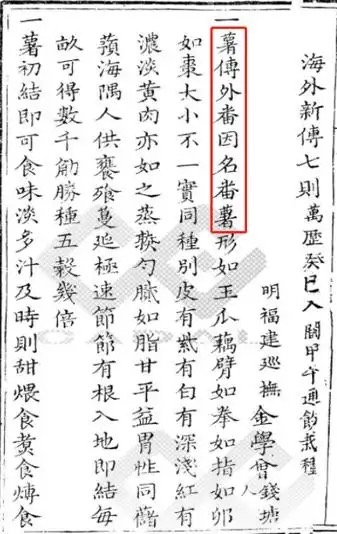 海外新傳七則萬歷癸巳入閩甲午通飭栽種
明福建巡撫金學曾錢塘人
一薯傳外番因名番薯形如玉瓜藕臂如拳如指如卵
如棗大小不一實同種別皮有紫有白有深淺紅有
濃淡黃肉亦如之蒸糗勻膩如脂甘平益胃性同藷
蕷海隅人供饔飱蔓延極速節節有根入地即結每
畝可得數千觔勝種五穀幾倍
一薯初結即可食味淡多汁及時則甜煨食煮食煿食